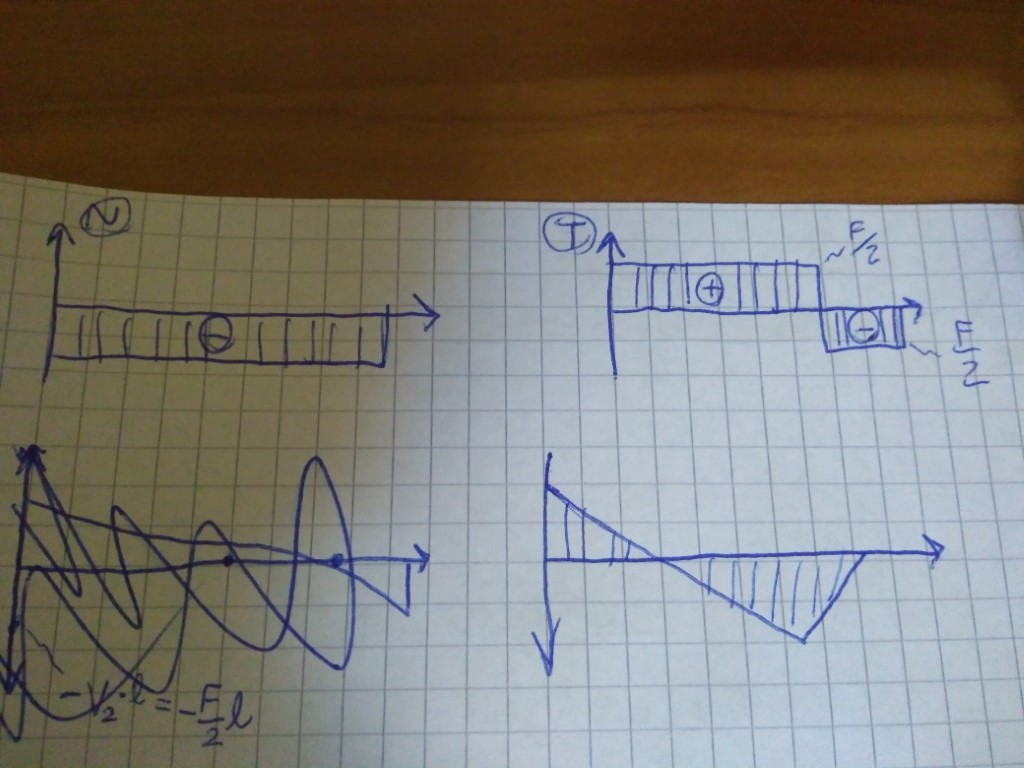 N
T
~ F/2
−
+
−
~ F/2
− V/2 · l = − F/2 l